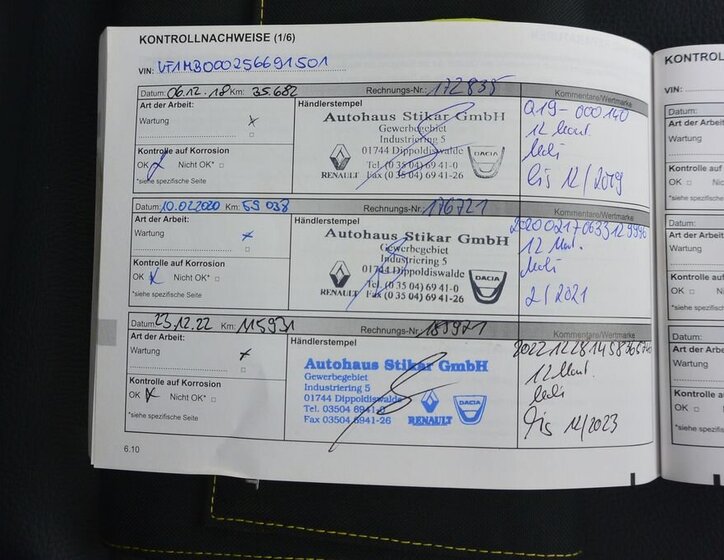 KONTROLLNACHWEISE (1/6)
VIN: VF1MB000256691501
Datum: 06.12.18 Km: 35.682 Rechnungs-Nr.: 172835 Kommentare/Wertmarke
Art der Arbeit:
Wartung x
Kontrolle auf Korrosion
OK Nicht OK* □
*siehe spezifische Seite
Händlerstempel
Autohaus Stikar GmbH
Gewerbegebiet
Industriering 5
01744 Dippoldiswalde
Tel. (0 35 04) 69 41-0
Fax (0 35 04) 69 41-26
RENAULT DACIA
019-000140
12 Mont.
bis 12/2019
Datum: 10.02.2020 Km: 59 038 Rechnungs-Nr.: 176721 Kommentare/Wertmarke
Art der Arbeit:
Wartung x
Kontrolle auf Korrosion
OK Nicht OK* □
*siehe spezifische Seite
Händlerstempel
Autohaus Stikar GmbH
Gewerbegebiet
Industriering 5
01744 Dippoldiswalde
Tel. (0 35 04) 69 41-0
Fax (0 35 04) 69 41-26
RENAULT DACIA
12 Mont.
2/2021
Datum: 23.12.22 Km: 115931 Rechnungs-Nr. 183921 Kommentare/Wertmarke
Art der Arbeit:
Wartung x
Kontrolle auf Korrosion
OK Nicht OK* □
*siehe spezifische Seite
Händlerstempel
Autohaus Stikar GmbH
Gewerbegebiet
Industriering 5
01744 Dippoldiswalde
Tel. 03504 6941-0
Fax 03504 6941-26
RENAULT DACIA
12 Mont.
bis 12/2023
6.10
KONTROL
VIN:
Datum:
Art der Arbeit
Wartung
Kontrolle auf
OK □ Nicht
*siehe spezifische
Datum:
Art der Arbeit
Wartung
Kontrolle auf
OK □ Nich
*siehe spezifische
Datum:
Art der Arbeit
Wartung
Kontrolle auf
OK □ Nich
*siehe spezifische